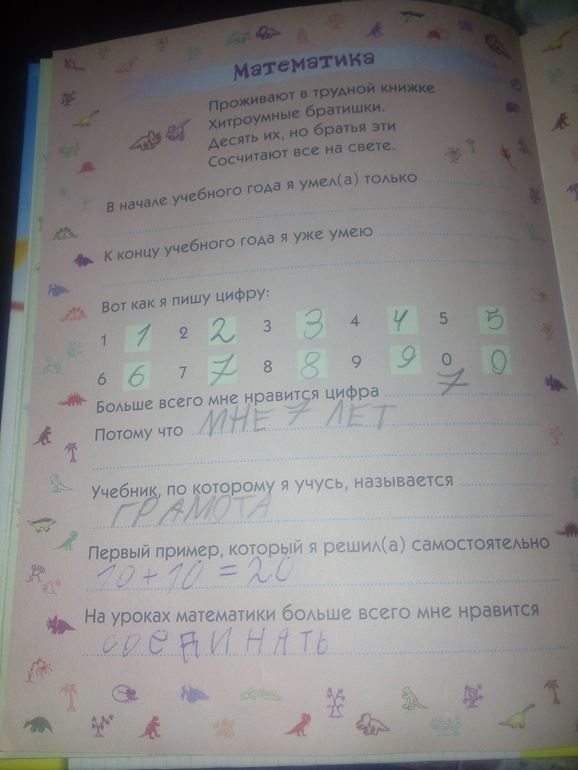 Математика
Проживают в трудной книжке
Хитроумные братишки.
Десять их, но братья эти
Сосчитают все на свете.
В начале учебного года я умел(а) только
К концу учебного года я уже умею
Вот как я пишу цифру:
1 1 2 2 3 3 4 4 5 5
6 6 7 7 8 8 9 9 0 0
Больше всего мне нравится цифра 7
Потому что МНЕ 7 ЛЕТ
Учебник, по которому я учусь, называется
ГРАМОТА
Первый пример, который я решил(а) самостоятельно
10+10=20
На уроках математики больше всего мне нравится
СОЕДИНАТЬ